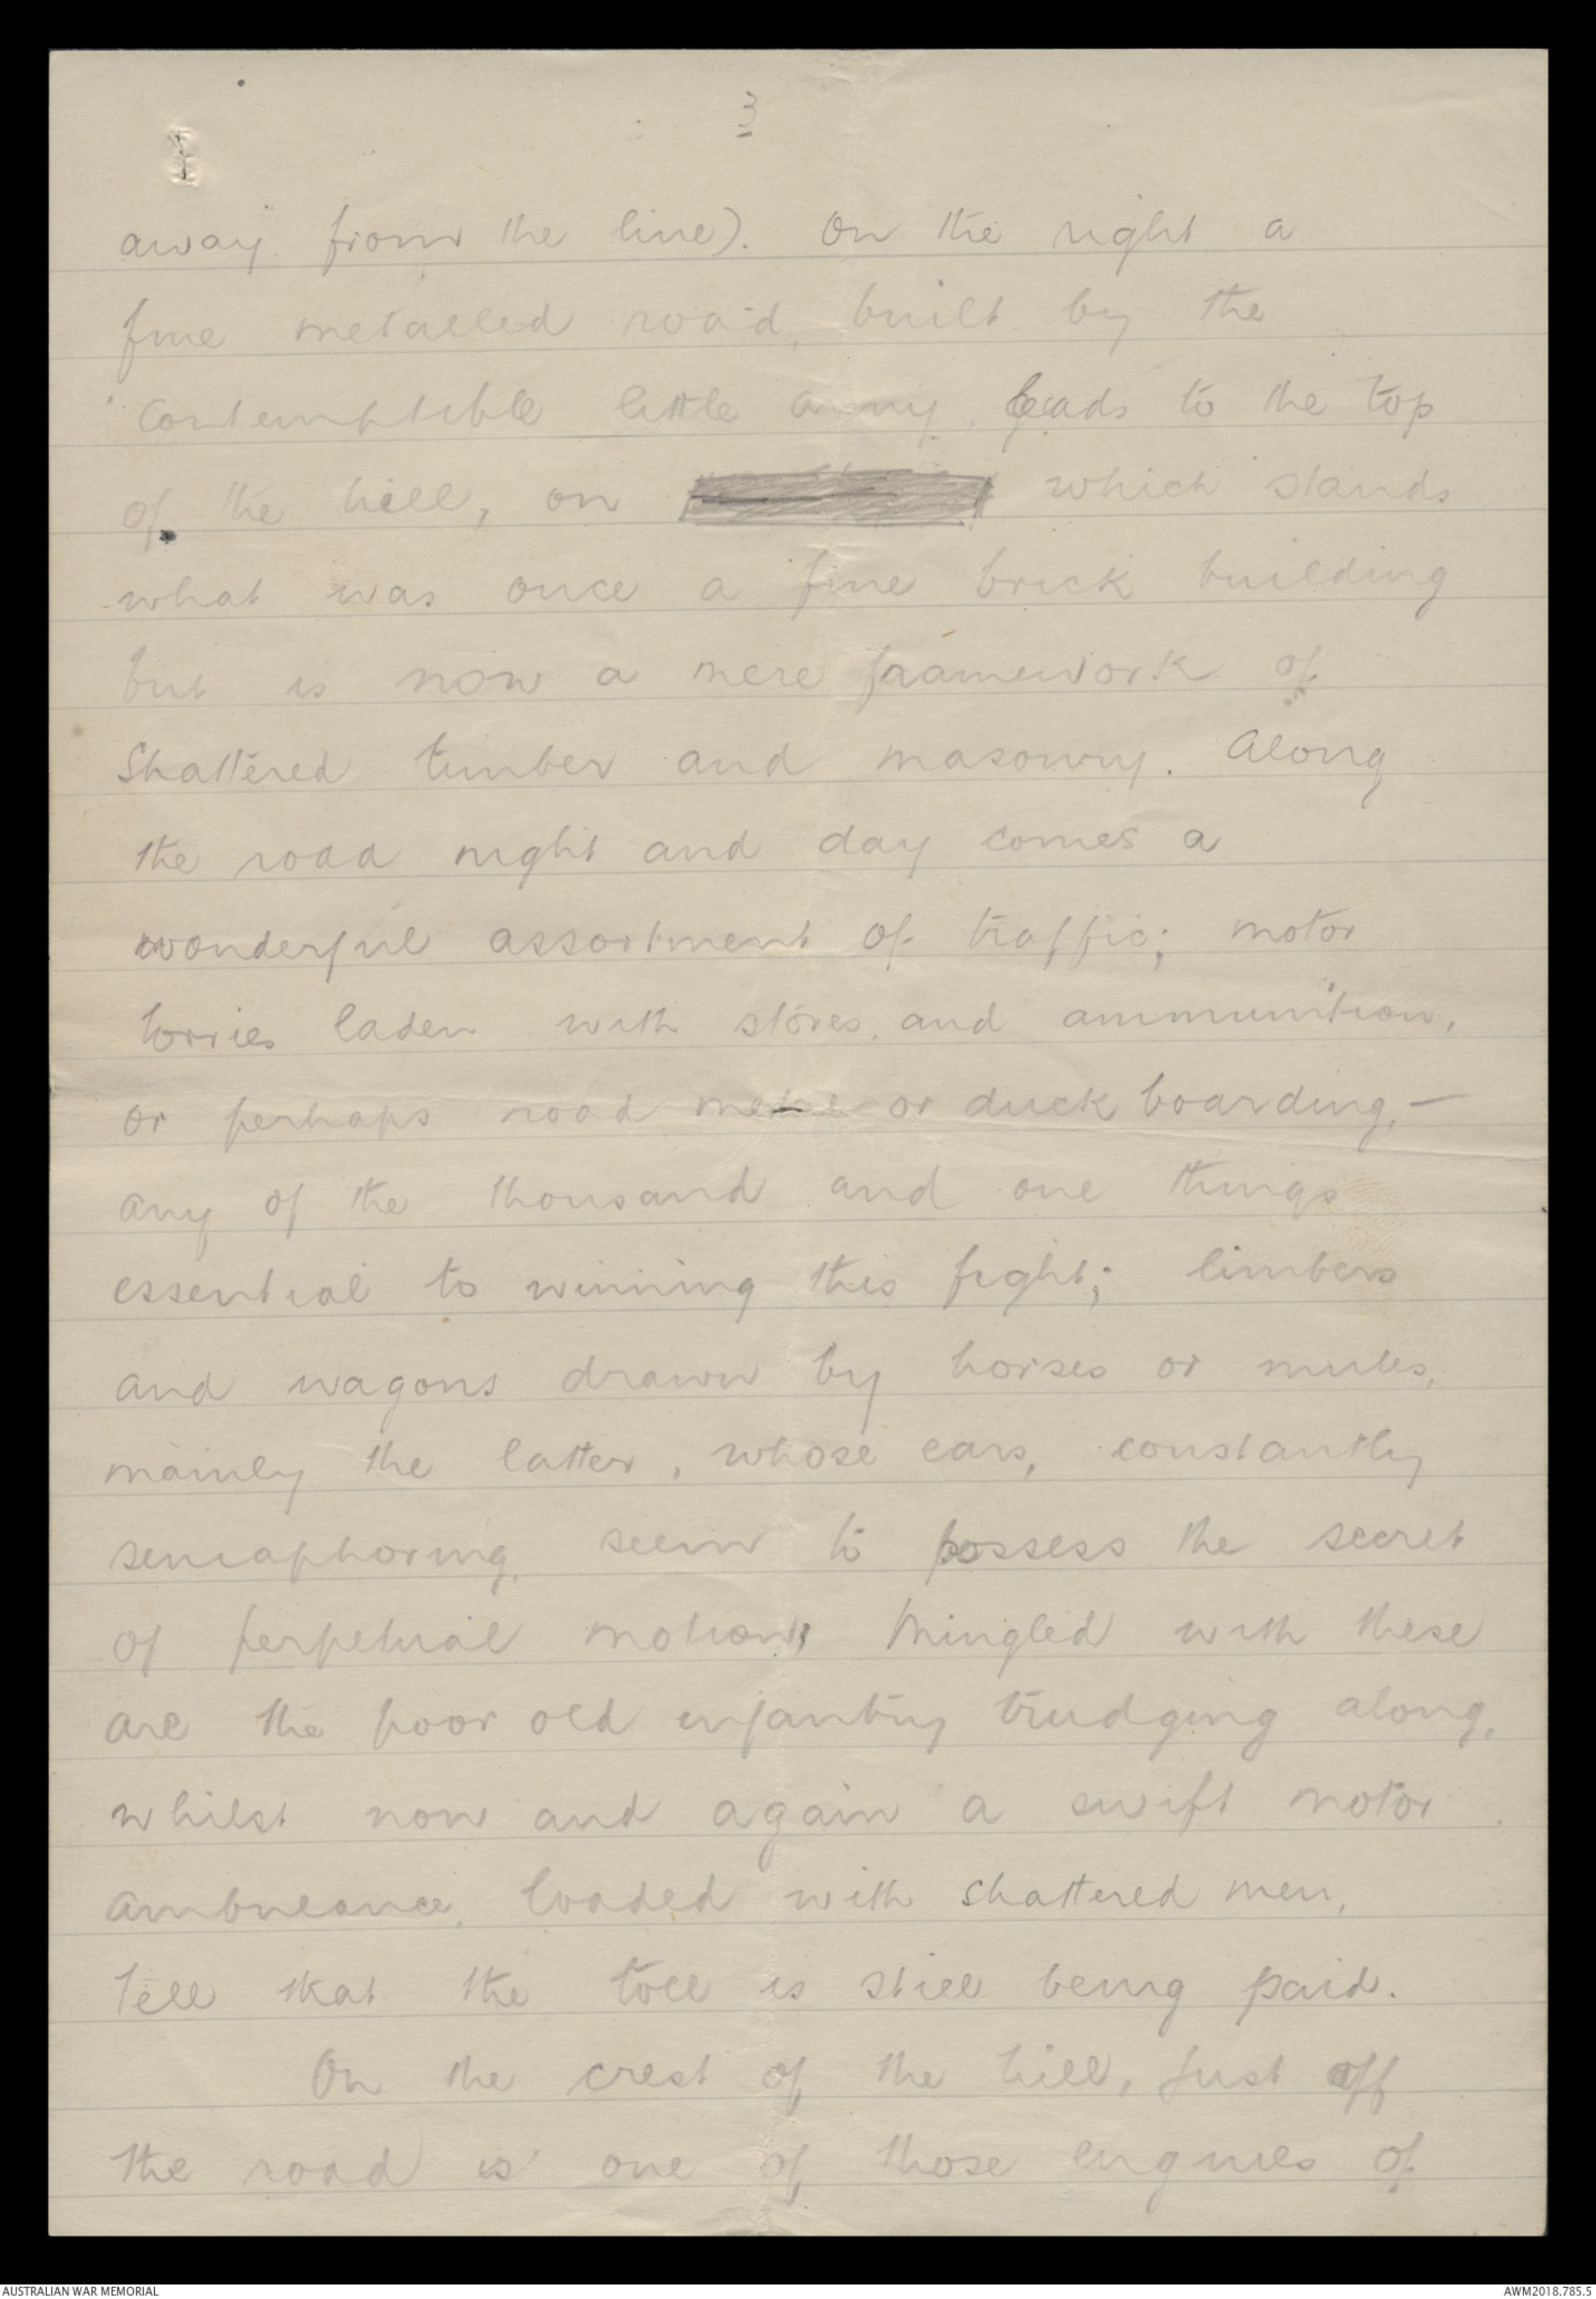 3
away from the line). On the right a
fine metalled road, built by the
'Contemptible little army, leads to the top
of the hill, on which stands
what was once a fine brick building
but is now a mere framework of
Shattered timber and masonry. Along
the road night and day comes a
wonderful assortment of traffic; motor
lorries laden with stores, and ammunition,
or perhaps road or duck boarding, —
any of the thousand and one things
essential to winning this fight; limbers
and wagons drawn by horses or mules,
mainly the latter, whose ears, constantly
semaphoring, seem to possess the secret
of perpetual motion. Mingled with these
are the poor old infantry trudging along,
whilst now and again a swift motor
ambulance, loaded with shattered men,
tell that the toll is still being paid.
On the crest of the hill, just off
the road is one of those engines of
AUSTRALIAN WAR MEMORIAL
AWM2018.785.5